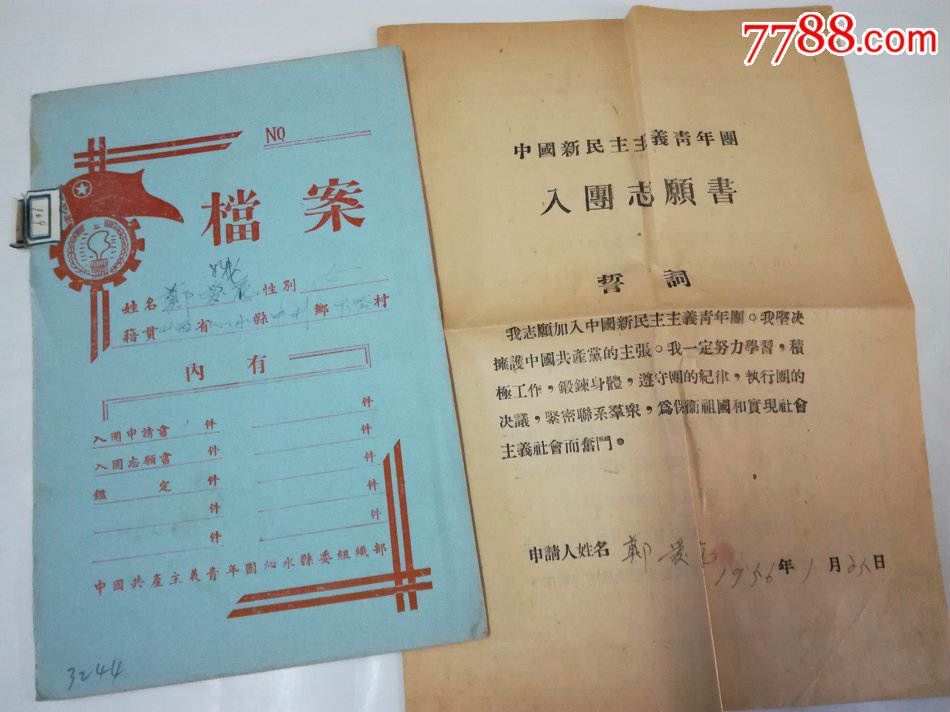 7788.com
NO
檔案
姓名 鄭 性別
籍貫 省 縣 鄉 村
內有
件
入團申請書 1 件
件
入團志願書 件
件
鑑定 件
件
件
件
件
中國共產主義青年團沁水縣委組織部
3244
中國新民主主義青年團
入團志願書
誓詞
我志願加入中國新民主主義青年團。我堅决
擁護中國共產黨的主張。我一定努力學習，積
極工作，鍛鍊身體，遵守團的紀律，執行團的
决議，緊密聯系羣衆，爲保衞祖國和實現社會
主義社會而奮鬥。
申請人姓名 鄭
1956年1月25日